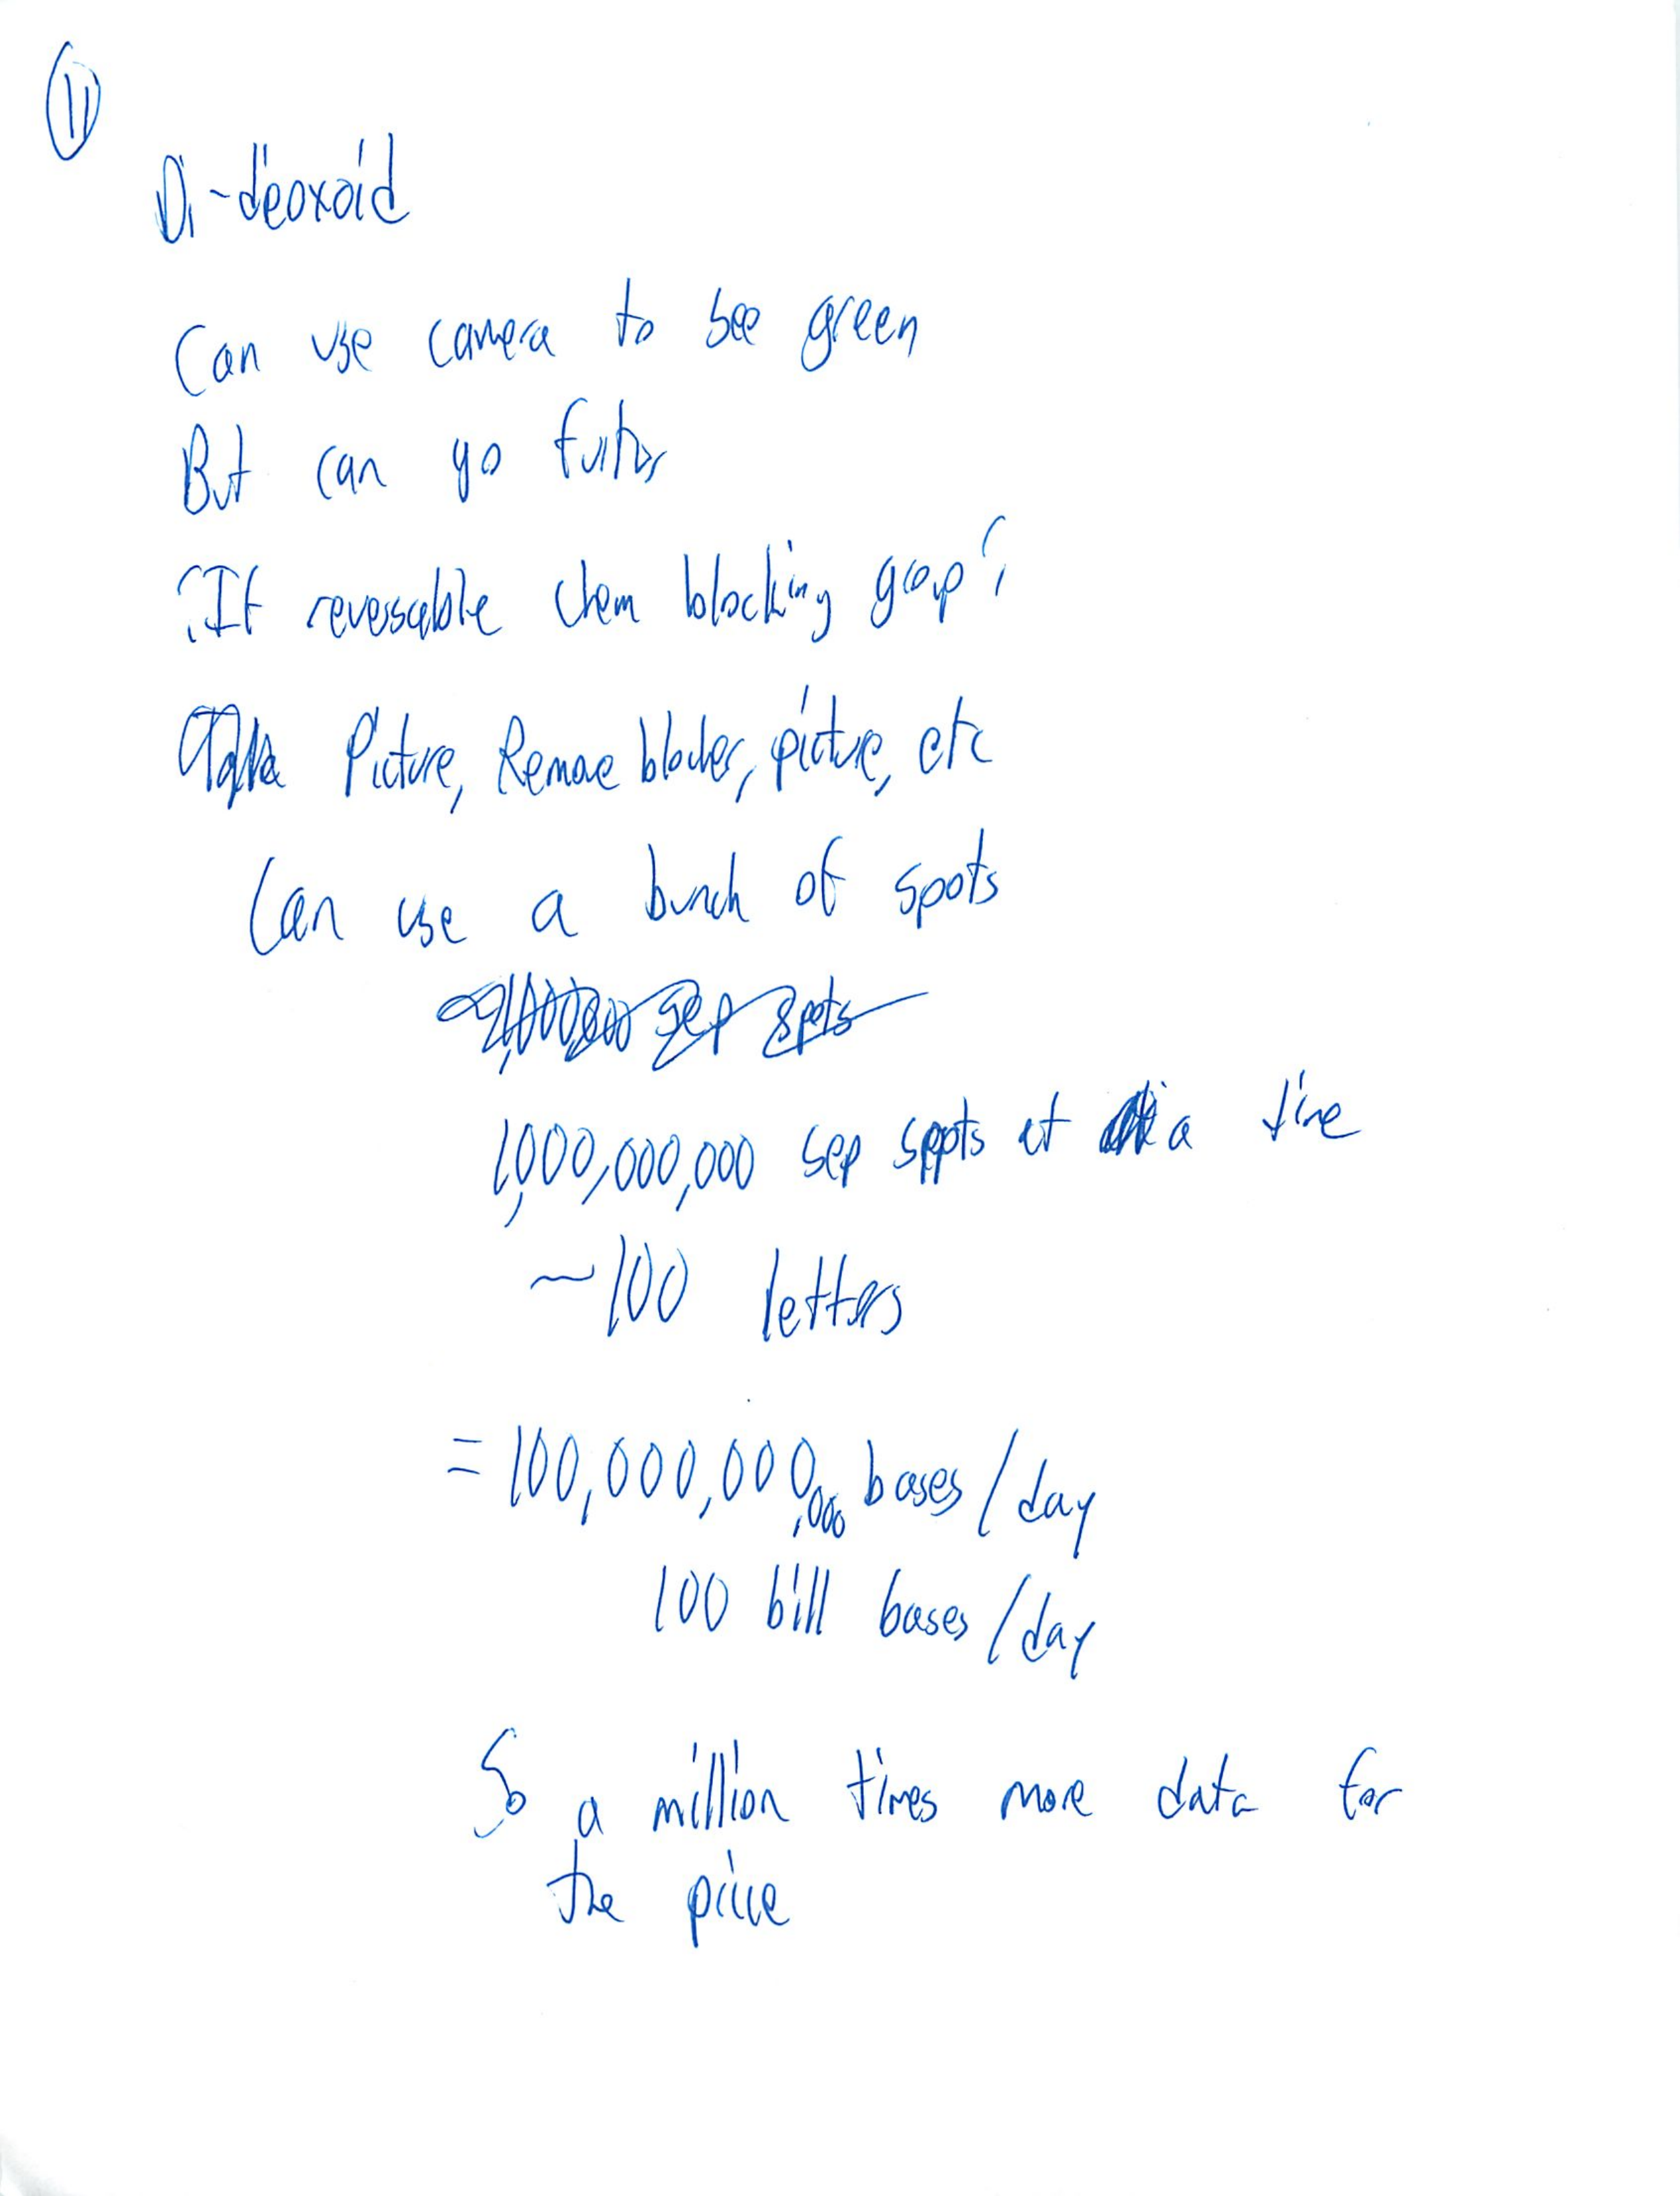 11
Di-deoxoid
Can use camera to see green
But can go furter
If reversable chem blocking group
Take Picture, Remove blocker, picture, etc
Can use a bunch of spots
sep spots
1,000,000,000 sep spots at a time
~100 letters
= 100,000,000,000 bases/day
100 bill bases/day
So a million times more data for
the price